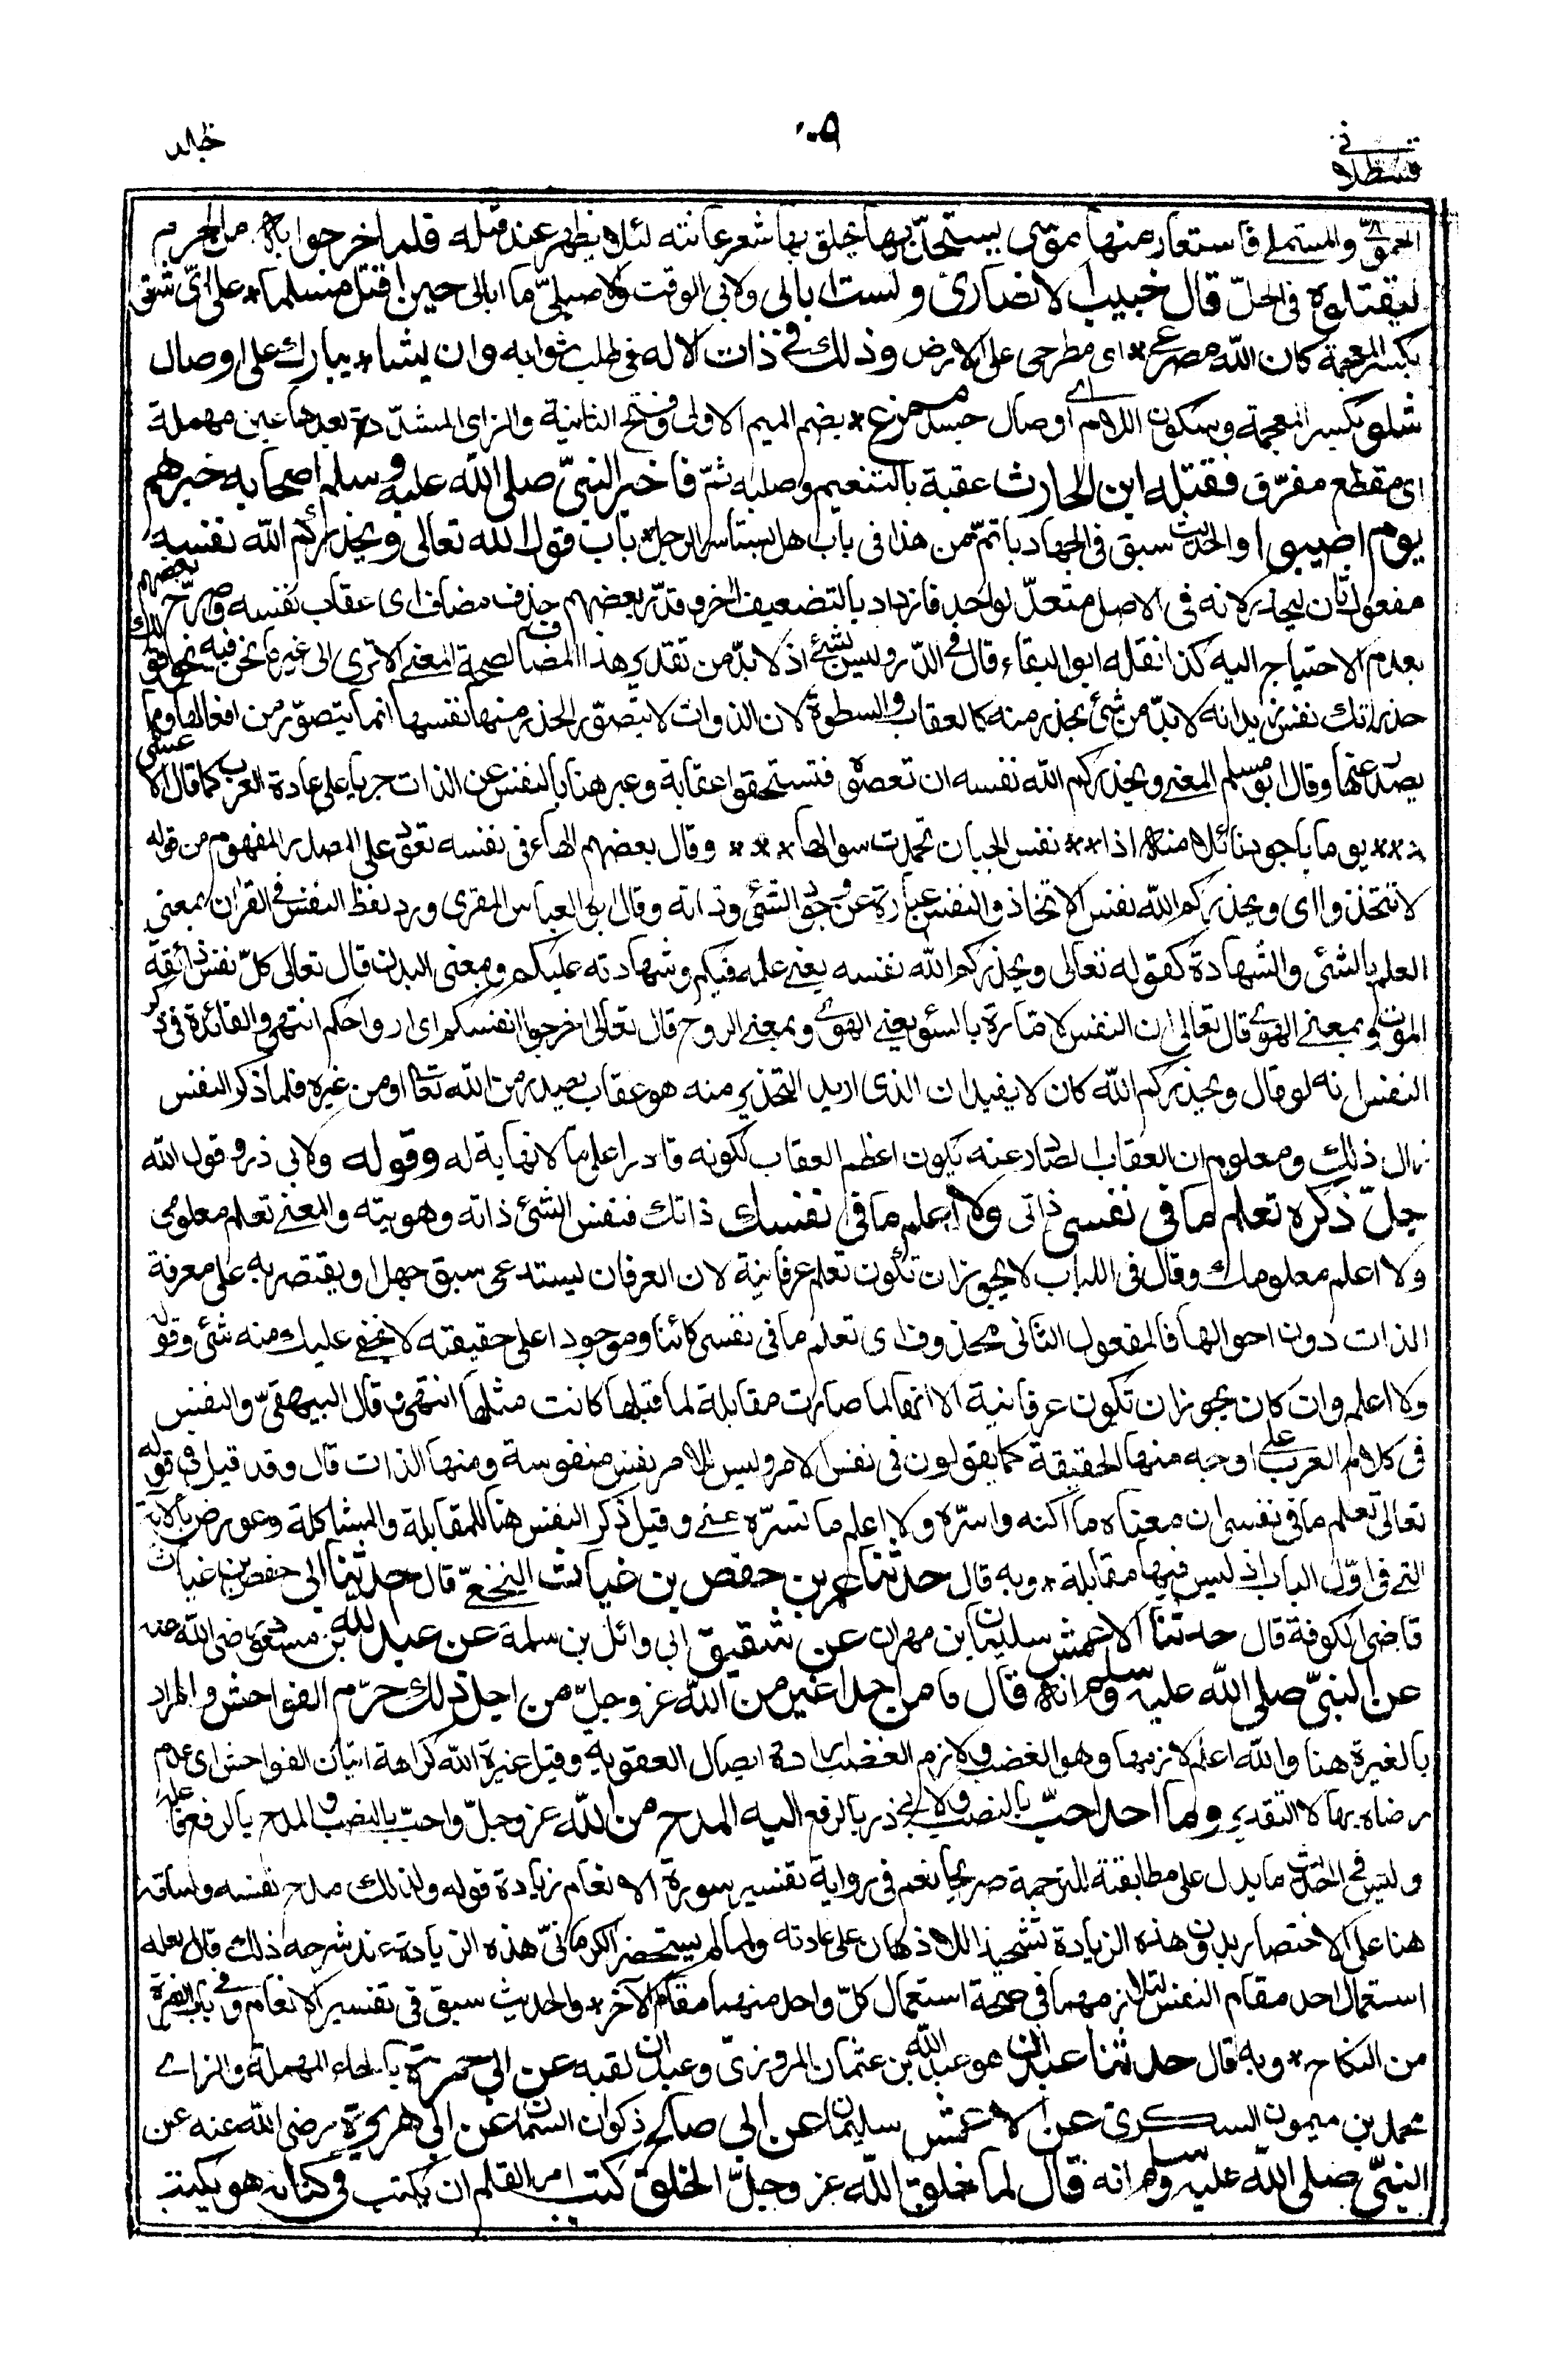 قسطلانى
خالد
الحموىّ والمستملى فاستعار منها موسى يستحدّ بها يحلق بها شعر عانته لئلا يظهر عند قتله فلما اخرجوا به من الحرم
ليقتلوه فى الحلّ قال خبيب الانصارىّ ولست ابالى ولابى الوقت والاصيلىّ ما ابالى حين اقتل مسلما * على اىّ شق
بكسر المعجمة كان الله مصرعى * اى مطرحى على الارض وذلك فى ذات الاله فى طلب ثوابه وان يشأ * يبارك على اوصال
شلو بكسر المعجمة وسكون اللام اى اوصال جسد ممزع * بضم الميم الاولى وفتح الثانية والزاى المشدّدة بعدها عين مهملة
اى مقطع مفرّق فقتله ابن الحارث عقبة بالتنعيم وصلبه ثمّ فاخبر النبىّ صلى الله عليه وسلم اصحابه خبرهم
يوم اصيبوا والحديث سبق فى الجهاد باتمّ من هذا فى باب هل يستأسر الرجل * باب قول الله تعالى ويحذركم الله نفسه
مفعول ثان ليحذر لانه فى الاصل متعدّ لواحد فازداد بالتضعيف اخر وقدّر بعضهم حذف مضاف اى عقاب نفسه وصرّح بعضهم
بعدم الاحتياج اليه كذا نقله ابو البقاء قال فى الدّر وليس بشئ اذ لا بدّ من تقدير هذا المضاف لصحة المعنى الا ترى الى غير ما نحن فيه نحو قولك
حذرتك نفس زيد انه لا بدّ من شئ يحذر منه كالعقاب والسطوة لان الذوات لا يتصوّر الحذر منها نفسها انما يتصوّر من افعالها وما
يصدر عنها وقال ابو مسلم المعنى ويحذركم الله نفسه ان تعصوه فتستحقوا عقابه وعبر هنا بالنفس عن الذات جريا على عادة العرب كما قال الاعشى
*** يوما باجود نائلا منه اذا *** نفس الجبان تجمدت سوالها *** وقال بعضهم الهاء فى نفسه تعود على المصدر المفهوم من قوله
لا تتخذوا اى ويحذركم الله نفس الاتخاذ والنفس عبارة عن وجود الشئ وذاته وقال ابو العباس المقرى ورد لفظ النفس فى القران بمعنى
العلم بالشئ والشهادة كقوله تعالى ويحذركم الله نفسه يعنى علمه فيكم وشهادته عليكم وبمعنى البدن قال تعالى كلّ نفس ذائقة
الموت وبمعنى الهوى قال تعالى ان النفس لامّارة بالسوء يعنى الهوى وبمعنى الروح قال تعالى اخرجوا انفسكم اى ارواحكم انتهى والفائدة فى ذكر
النفس انه لو قال ويحذركم الله كان لا يفيد ان الذى اريد التحذير منه هو عقاب يصدر من الله تعالى او من غيره فلما ذكر النفس
زال ذلك ومعلوم ان العقاب الصادر عنه يكون اعظم العقاب لكونه قادرا على ما لا نهاية له وقوله ولابى ذر وقول الله
جلّ ذكره تعلم ما فى نفسى ذاتى ولا اعلم ما فى نفسك ذاتك فنفس الشئ ذاته وهويته والمعنى تعلم معلومى
ولا اعلم معلومك وقال فى اللباب لا يجوز ان تكون تعلم عرفانية لان العرفان يستدعى سبق جهل او يقتصر به على معرفة
الذات دون احوالها فالمفعول الثانى محذوف اى تعلم ما فى نفسى كائنا وموجودا على حقيقته لا يخفى عليك منه شئ وقوله
ولا اعلم وان كان يجوز ان تكون عرفانية الا انها لما صارت مقابلة لما قبلها كانت مثلها انتهى وقال البيهقىّ والنفس
فى كلام العرب على اوجه منها الحقيقة كما يقولون فى نفس الامر وليس للامر نفس منفوسة ومنها الذات قال وقد قيل فى قوله
تعالى تعلم ما فى نفسى ان معناه ما اكنه واسرّه ولا اعلم ما تسرّه عنى وقيل ذكر النفس هنا للمقابلة والمشاكلة وعورض بالاية
التى فى اوّل الباب اذ ليس فيها مقابلة * وبه قال حدثنا عمر بن حفص بن غياث النخعىّ قال حدثنا ابى حفص بن غياث
قاضى الكوفة قال حدثنا الاعمش سليمان بن مهران عن شقيق ابى وائل بن سلمة عن عبد الله بن مسعود رضى الله عنه
عن النبىّ صلى الله عليه وسلم انه قال ما من احد اغير من الله عز وجلّ من اجل ذلك حرّم الفواحش والمراد
بالغيرة هنا والله اعلم لازمها وهو الغضب ولازم الغضب ارادة ايصال العقوبة وقيل غيرة الله كراهة اتيان الفواحش اى عدم
رضاه بها لا التقدير وما احد احبّ بالنصب ولابى ذر بالرفع اليه المدح من الله عز وجلّ واحبّ بالنصب والمدح بالرفع فاعله
وليس فى الحديث ما يدل على مطابقة الترجمة صريحا نعم فى رواية تفسير سورة الانعام زيادة قوله ولذلك مدح نفسه وساقه
هنا على الاختصار بدون هذه الزيادة تشحيذا للاذهان على عادته ولما لم يستحضر الكرمانىّ هذه الزيادة عند شرحه ذلك قال لعله
استعمال احد مقام النفس لتلازمهما فى صحة استعمال كلّ واحد منهما مقام الآخر * والحديث سبق فى تفسير الانعام وفى باب الغيرة
من النكاح * وبه قال حدثنا عبدان هو عبد الله بن عثمان المروزىّ وعبدان لقبه عن ابى حمزة بالحاء المهملة والزاى
محمد بن ميمون السكرىّ عن الاعمش سليمان عن ابى صالح ذكوان السمان عن ابى هريرة رضى الله عنه عن
النبىّ صلى الله عليه وسلم انه قال لما خلق الله عز وجلّ الخلق كتب امر القلم ان يكتب فى كتابه هو يكتب